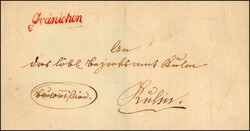 Gränichen
An
das löbl. Bezirksamt Kulm
Kulm.